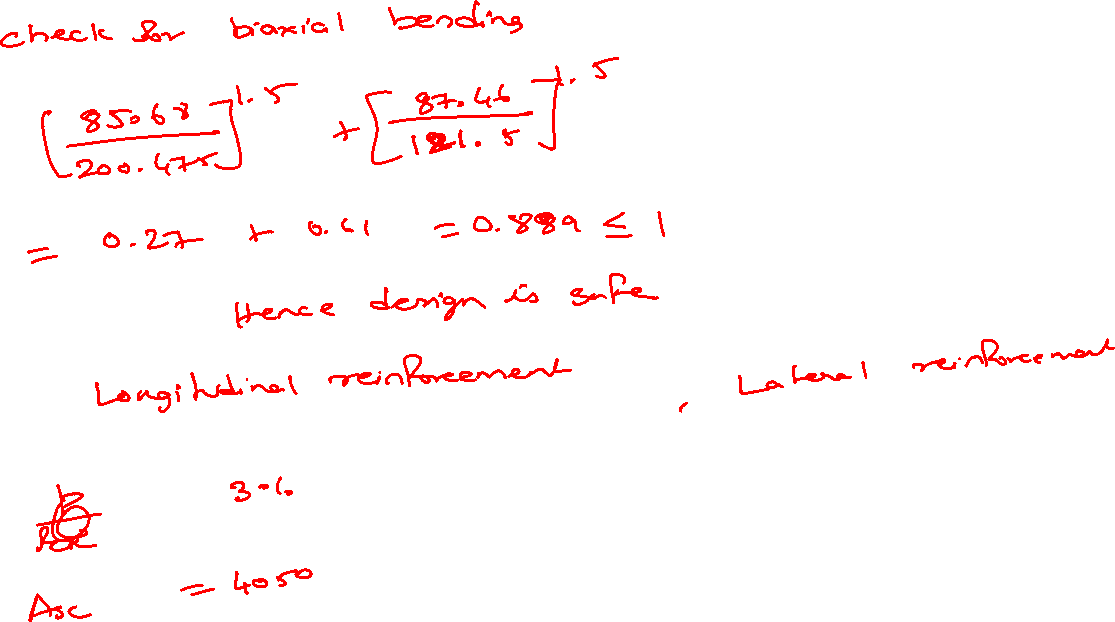 check for biaxial bending
[85.68/200.475]^1.5 + [87.46/121.5]^1.5
= 0.27 + 0.61 = 0.889 ≤ 1
Hence design is safe
Longitudinal reinforcement , Lateral reinforcement
Asc = 4050